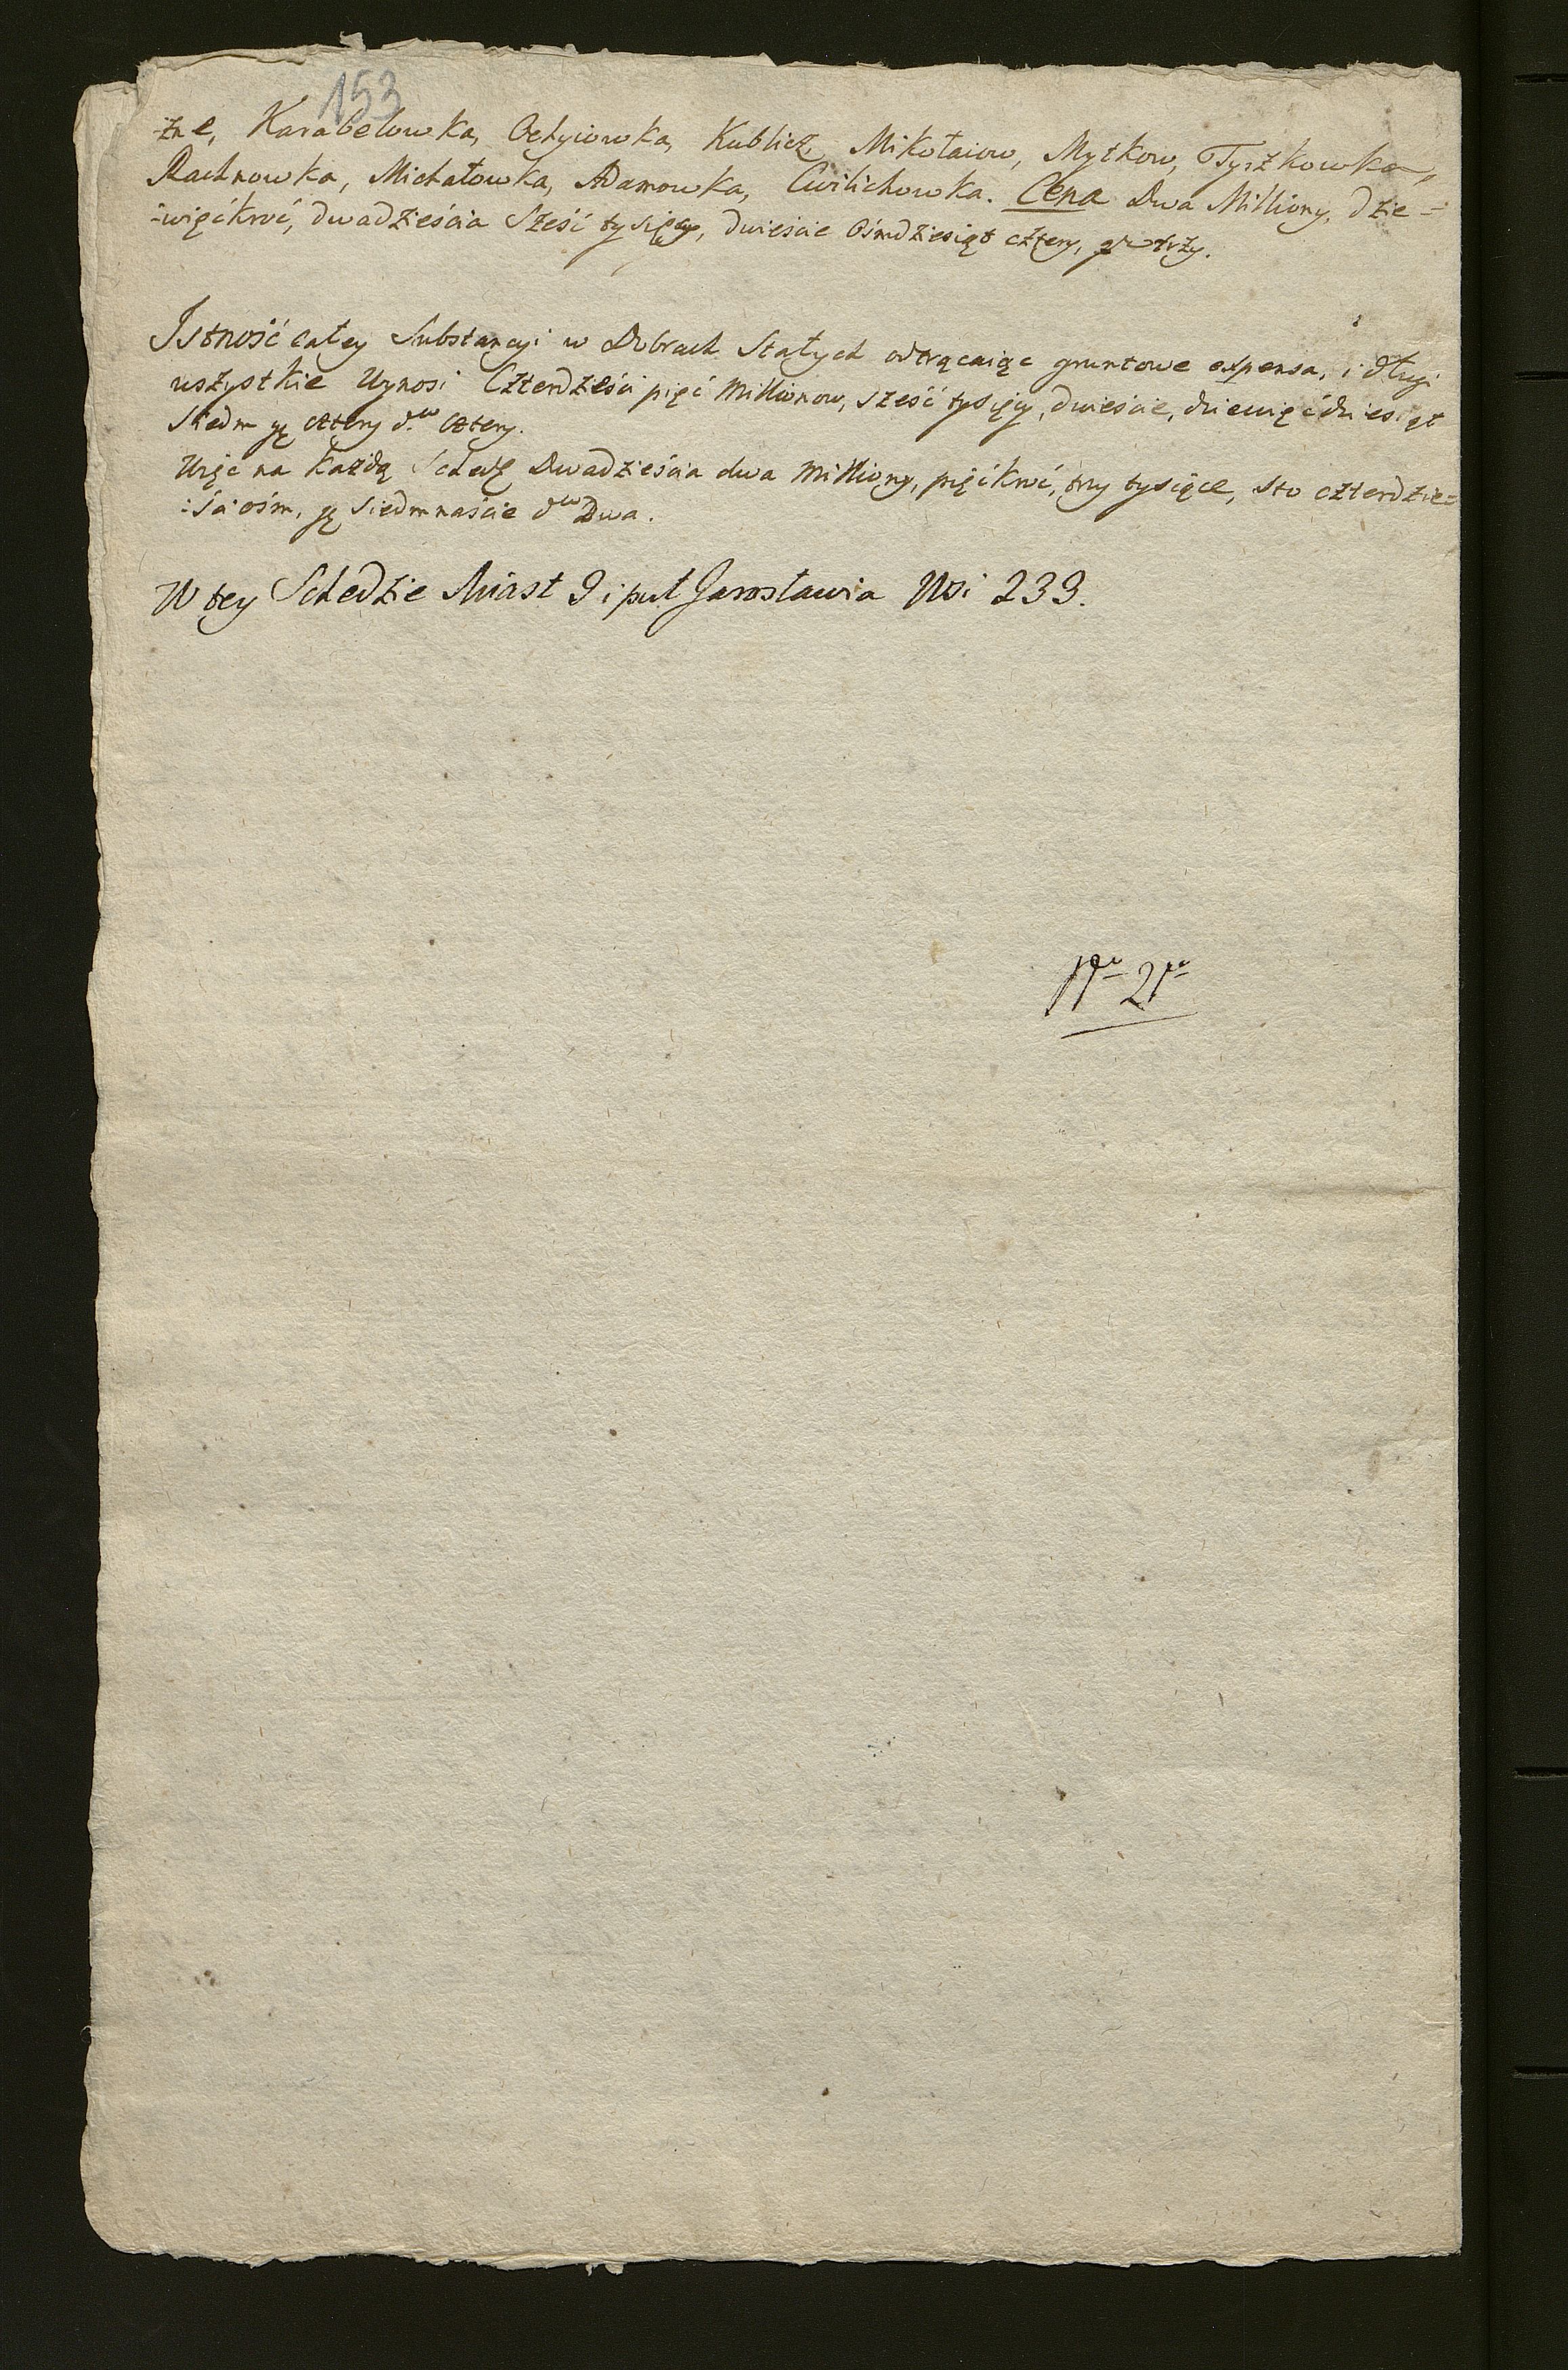 153
-żne, Karabelowka, Ochyiowka, Kublicz, Mikołaiow, Mytkow, Tyszkowka,
Rachnowka, Michałowka, Adamowka, Cwilichowka. Cena Dwa Milliony, dzie=
=więćkroć, dwadzieścia Sześć tysięcy, dwieście Ośmdziesiąt cztery, gr trzy.
Istność całey Substancyi w Dobrach Stałych odtrącaiąc gruntowe expensa, i długi
wszystkie Wynosi Czterdzieści pięć Millionow, sześć tysięcy, dwieście, dziewięćdziesiąt
Siedm gę cztery d^w cztery.
Więc na każdą Schedę Dwadzieścia dwa Milliony, pięćkroć, trzy tysiące, sto czterdzie=
:ści ośm, gę Siedmnaście d^w Dwa.
W tey Schedzie Miast 9 i puł Jarosławia Wsi 239.